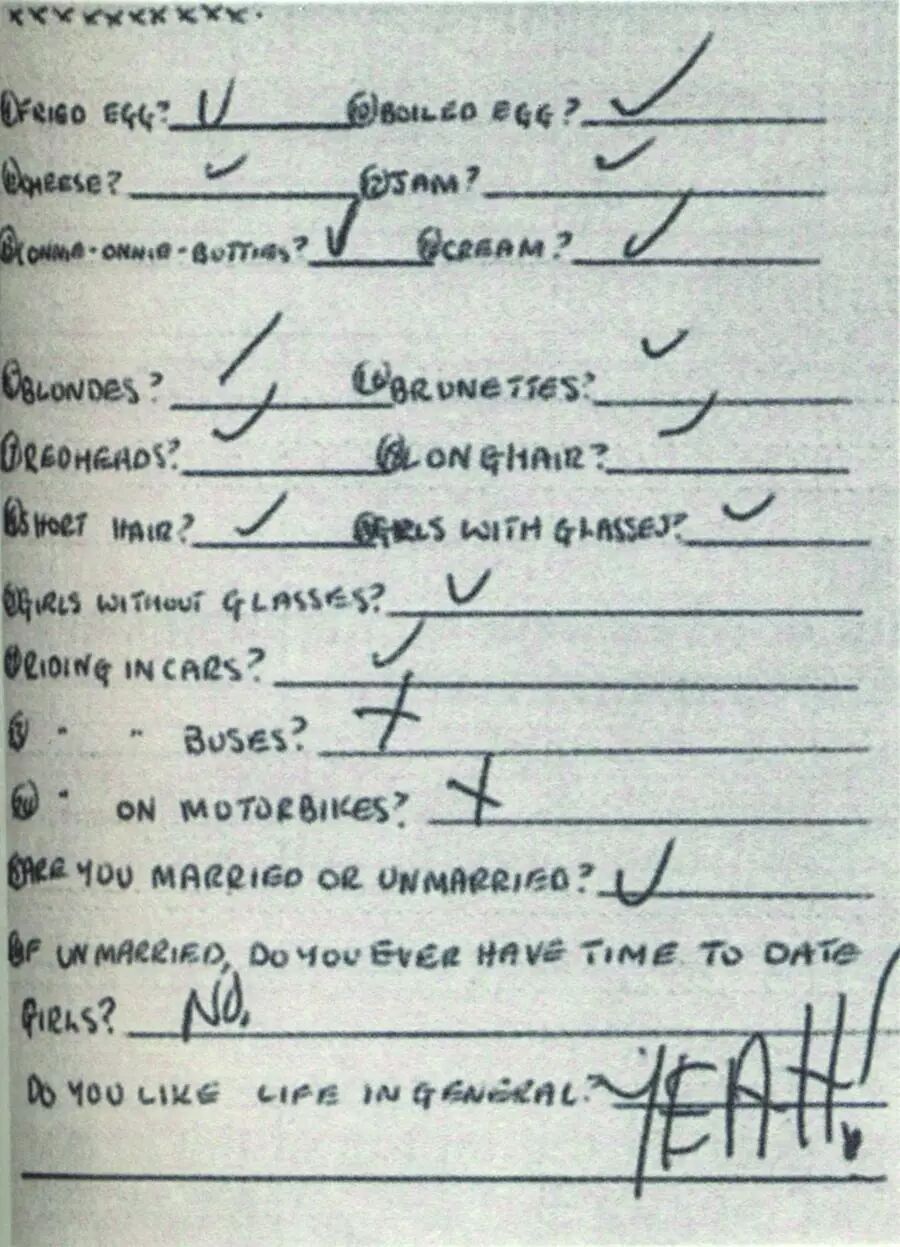 xxxxxxxxxx.
FRIED EGG? ✓ BOILED EGG? ✓
CHEESE? ✓ JAM? ✓
CONNIE-ONNIE-BUTTIES? ✓ CREAM? ✓
BLONDES? ✓ BRUNETTES? ✓
REDHEADS? ✓ LONGHAIR? ✓
SHORT HAIR? ✓ GIRLS WITH GLASSES? ✓
GIRLS WITHOUT GLASSES? ✓
RIDING IN CARS? ✓
" " BUSES? X
" ON MOTORBIKES? X
ARE YOU MARRIED OR UNMARRIED? ✓
IF UNMARRIED, DO YOU EVER HAVE TIME TO DATE
GIRLS? NO.
DO YOU LIKE LIFE IN GENERAL? YEAH!